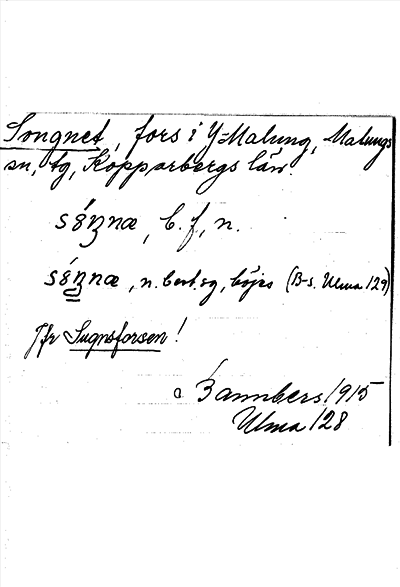 Songnet, fors i Y-Malung, Malungs
sn, tg, Kopparbergs län.
sóŋnæ, b. f, n.
sóŋnæ, n. best. sg, böjes (B-s. Ulma 129)
Jfr Sugnsforsen!
a Bannbers 1915
Ulma 128